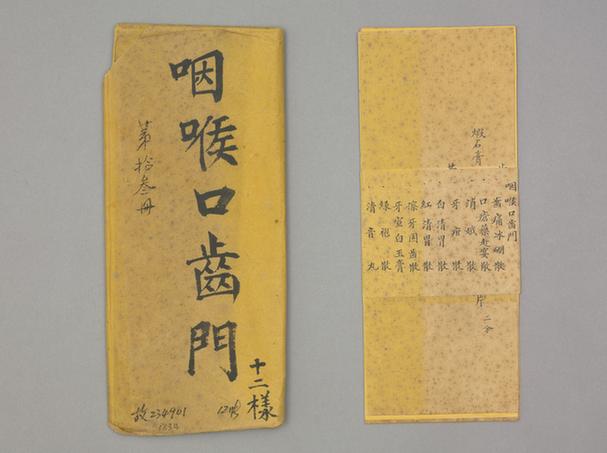 咽喉口齒門
第拾叁册
十二樣
故234901
咽喉口齒門
齒痛冰硼散
口瘡藥赴宴散
消蛾散
牙疳散
白清胃散
紅清胃散
擦牙固齒散
牙宣白玉膏
綠袍散
清音丸
蝦石膏
片二分